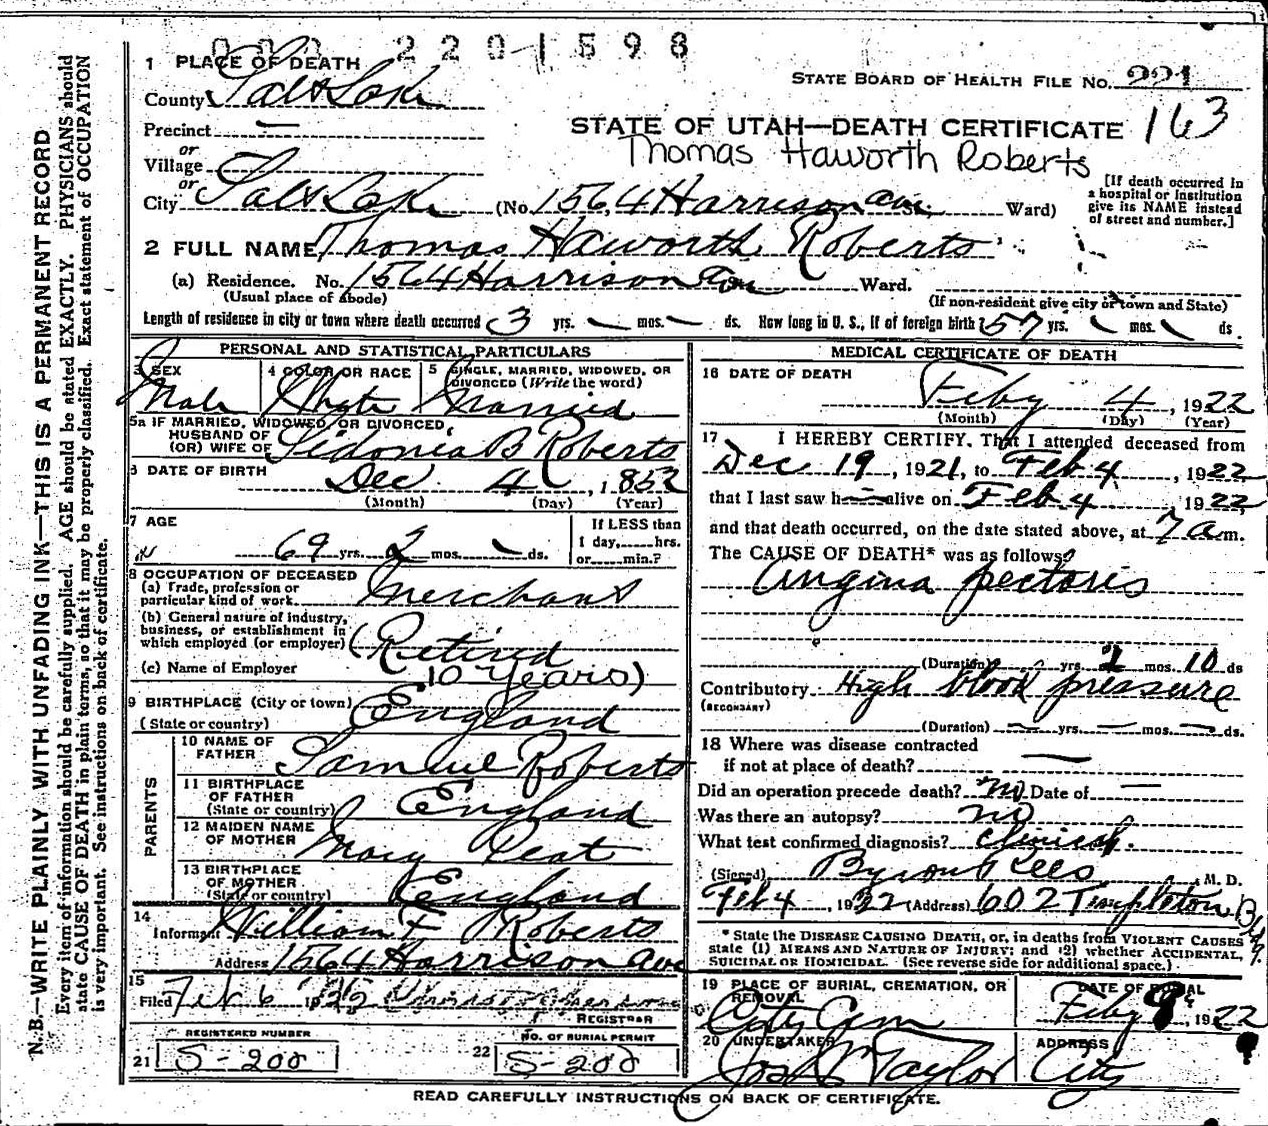 000 2201598
1 PLACE OF DEATH
STATE BOARD OF HEALTH FILE No. 221
County Salt Lake
163
Precinct —
STATE OF UTAH—DEATH CERTIFICATE
or
Village
Thomas Haworth Roberts
or
City Salt Lake (No. 1564 Harrison Ave. St. Ward)
[If death occurred in
a hospital or institution
give its NAME instead
of street and number.]
2 FULL NAME Thomas Haworth Roberts
(a) Residence. No. 1564 Harrison Ave Ward.
(Usual place of abode)
(If non-resident give city or town and State)
Length of residence in city or town where death occurred 3 yrs. — mos. — ds. How long in U. S., if of foreign birth? 57 yrs. — mos. — ds.
PERSONAL AND STATISTICAL PARTICULARS
3 SEX
Male
4 COLOR OR RACE
White
5 SINGLE, MARRIED, WIDOWED, OR
DIVORCED (Write the word)
Married
5a IF MARRIED, WIDOWED, OR DIVORCED,
HUSBAND OF
(OR) WIFE OF Sidonia B Roberts
6 DATE OF BIRTH
Dec 4, 1852
(Month) (Day) (Year)
7 AGE
69 yrs. 2 mos. — ds.
If LESS than
1 day,......hrs.
or......min.?
8 OCCUPATION OF DECEASED
(a) Trade, profession or
particular kind of work. Merchant
(b) General nature of industry,
business, or establishment in
which employed (or employer) (Retired
(c) Name of Employer 10 Years)
9 BIRTHPLACE (City or town)
(State or country) England
PARENTS
10 NAME OF
FATHER Samuel Roberts
11 BIRTHPLACE
OF FATHER
(State or country) England
12 MAIDEN NAME
OF MOTHER Mary
13 BIRTHPLACE
OF MOTHER
(State or country) England
14
Informant William F Roberts
Address 1564 Harrison Ave
15
Filed Feb 6 1922
REGISTRAR
REGISTERED NUMBER
21 S-200
NO. OF BURIAL PERMIT
22 S-200
MEDICAL CERTIFICATE OF DEATH
16 DATE OF DEATH
Feby 4, 1922
(Month) (Day) (Year)
17 I HEREBY CERTIFY, That I attended deceased from
Dec 19, 1921, to Feb 4, 1922
that I last saw h— alive on Feb 4 1922
and that death occurred, on the date stated above, at 7 a m.
The CAUSE OF DEATH* was as follows:
Angina pectoris
(Duration) yrs. mos. 10 ds
Contributory High blood pressure
(SECONDARY)
(Duration) — yrs. — mos. — ds.
18 Where was disease contracted
if not at place of death? —
Did an operation precede death? no Date of —
Was there an autopsy? no
What test confirmed diagnosis? clinical.
(Signed) Byron Rees, M. D.
Feb 4, 1922 (Address) 602 Templeton Bldg.
* State the DISEASE CAUSING DEATH, or, in deaths from VIOLENT CAUSES
state (1) MEANS AND NATURE OF INJURY; and (2) whether ACCIDENTAL,
SUICIDAL OR HOMICIDAL. (See reverse side for additional space.)
19 PLACE OF BURIAL, CREMATION, OR
REMOVAL
City Cem
DATE OF BURIAL
Feby 1922
20 UNDERTAKER
Jos Taylor
ADDRESS
City
READ CAREFULLY INSTRUCTIONS ON BACK OF CERTIFICATE.
N. B.—WRITE PLAINLY WITH UNFADING INK—THIS IS A PERMANENT RECORD
Every item of information should be carefully supplied. AGE should be stated EXACTLY. PHYSICIANS should
state CAUSE OF DEATH in plain terms, so that it may be properly classified. Exact statement of OCCUPATION
is very important. See instructions on back of certificate.